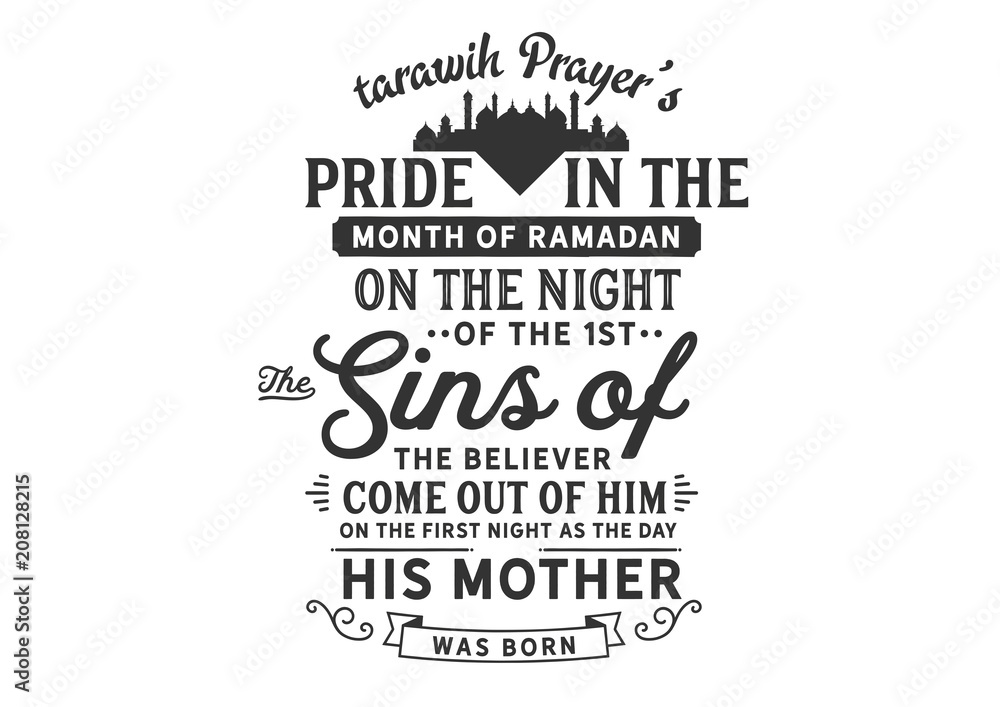 tarawih Prayer's
PRIDE IN THE
MONTH OF RAMADAN
ON THE NIGHT
OF THE 1ST
The Sins of
THE BELIEVER
COME OUT OF HIM
ON THE FIRST NIGHT AS THE DAY
HIS MOTHER
WAS BORN
Adobe Stock | #208128215